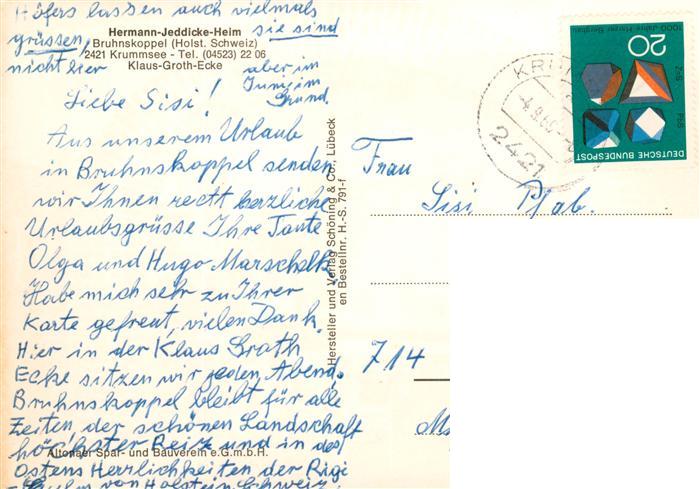 Höfers lassen auch vielmals
grüssen, sie sind
nicht hier aber im
Juni im
Grund.
Hermann-Jeddicke-Heim
Bruhnskoppel (Holst. Schweiz)
2421 Krummsee - Tel. (04523) 22 06
Klaus-Groth-Ecke
Liebe Sisi!
Aus unserem Urlaub
in Bruhnskoppel senden
wir Ihnen recht herzliche
Urlaubsgrüsse Ihre Tante
Olga und Hugo Marschalk
Habe mich sehr zu Ihrer
Karte gefreut, vielen Dank.
Hier in der Klaus Groth
Ecke sitzen wir jeden Abend.
Bruhnskoppel bleibt für alle
Zeiten der schönen Landschaft
höchster Reiz und in des
Ostens Herrlichkeiten der Rigi
von Holstein Schweiz.
Altonaer Spar- und Bauverein e.G.m.b.H.
Hersteller und Verlag Schöning & Co., Lübeck
en Bestellnr. H.-S. 791-f
Frau
Sisi Pfab.
714
2421
DEUTSCHE BUNDESPOST
20
1000 Jahre Harzer Bergbau
ZnS PbS